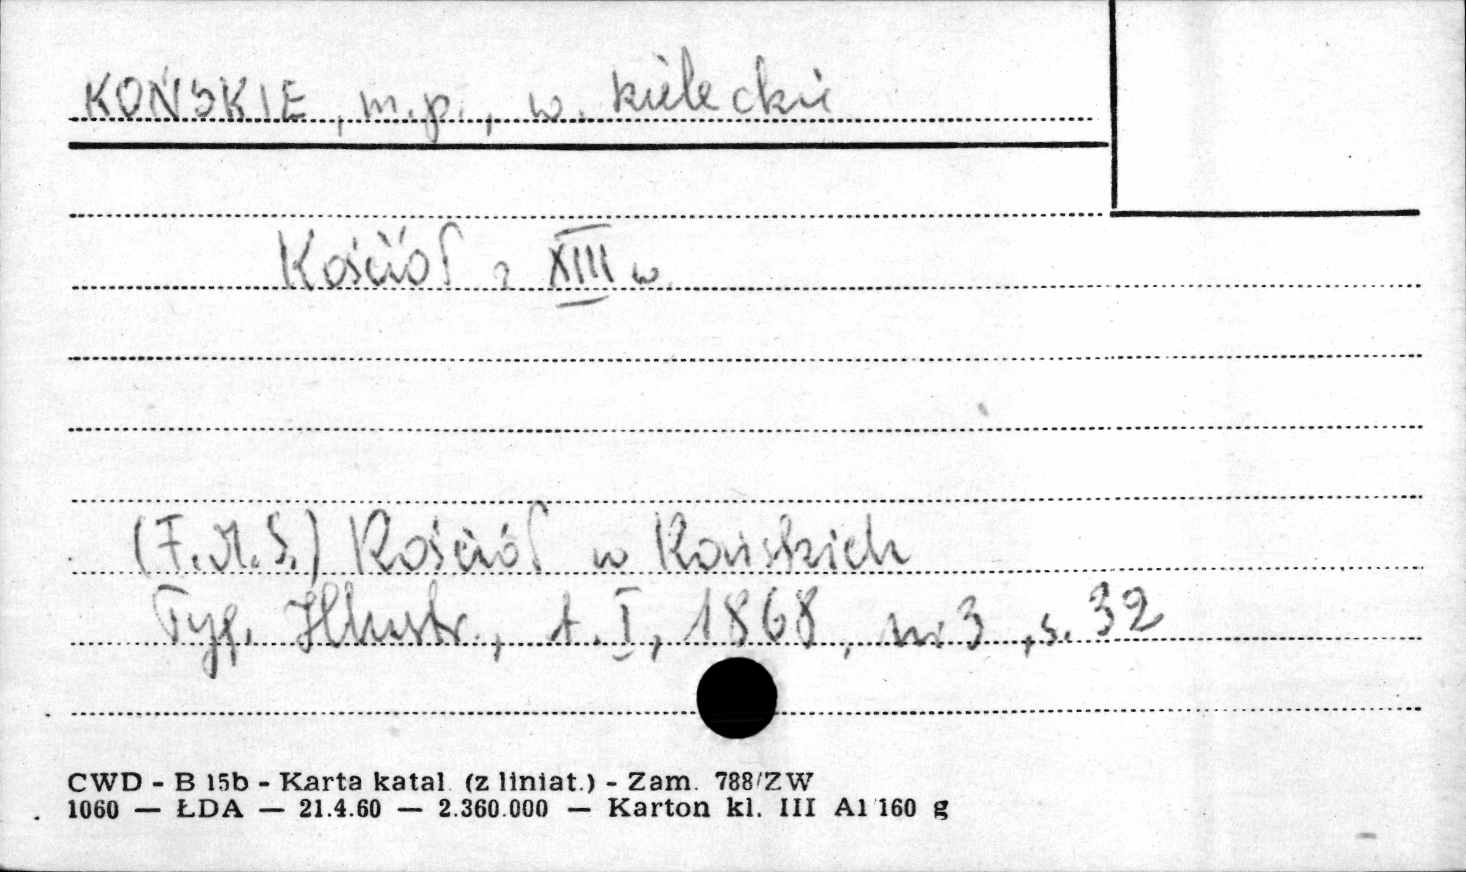 KOŃSKIE, m.p., w. kieleckie
Kościół z XIII w.
(F.M.S.) Kościół w Końskich
Tyg. Illustr., t. I, 1868, nr 3, s. 32
CWD - B 15b - Karta katal. (z liniat.) - Zam. 788/ZW
1060 — ŁDA — 21.4.60 — 2.360.000 — Karton kl. III A1 160 g